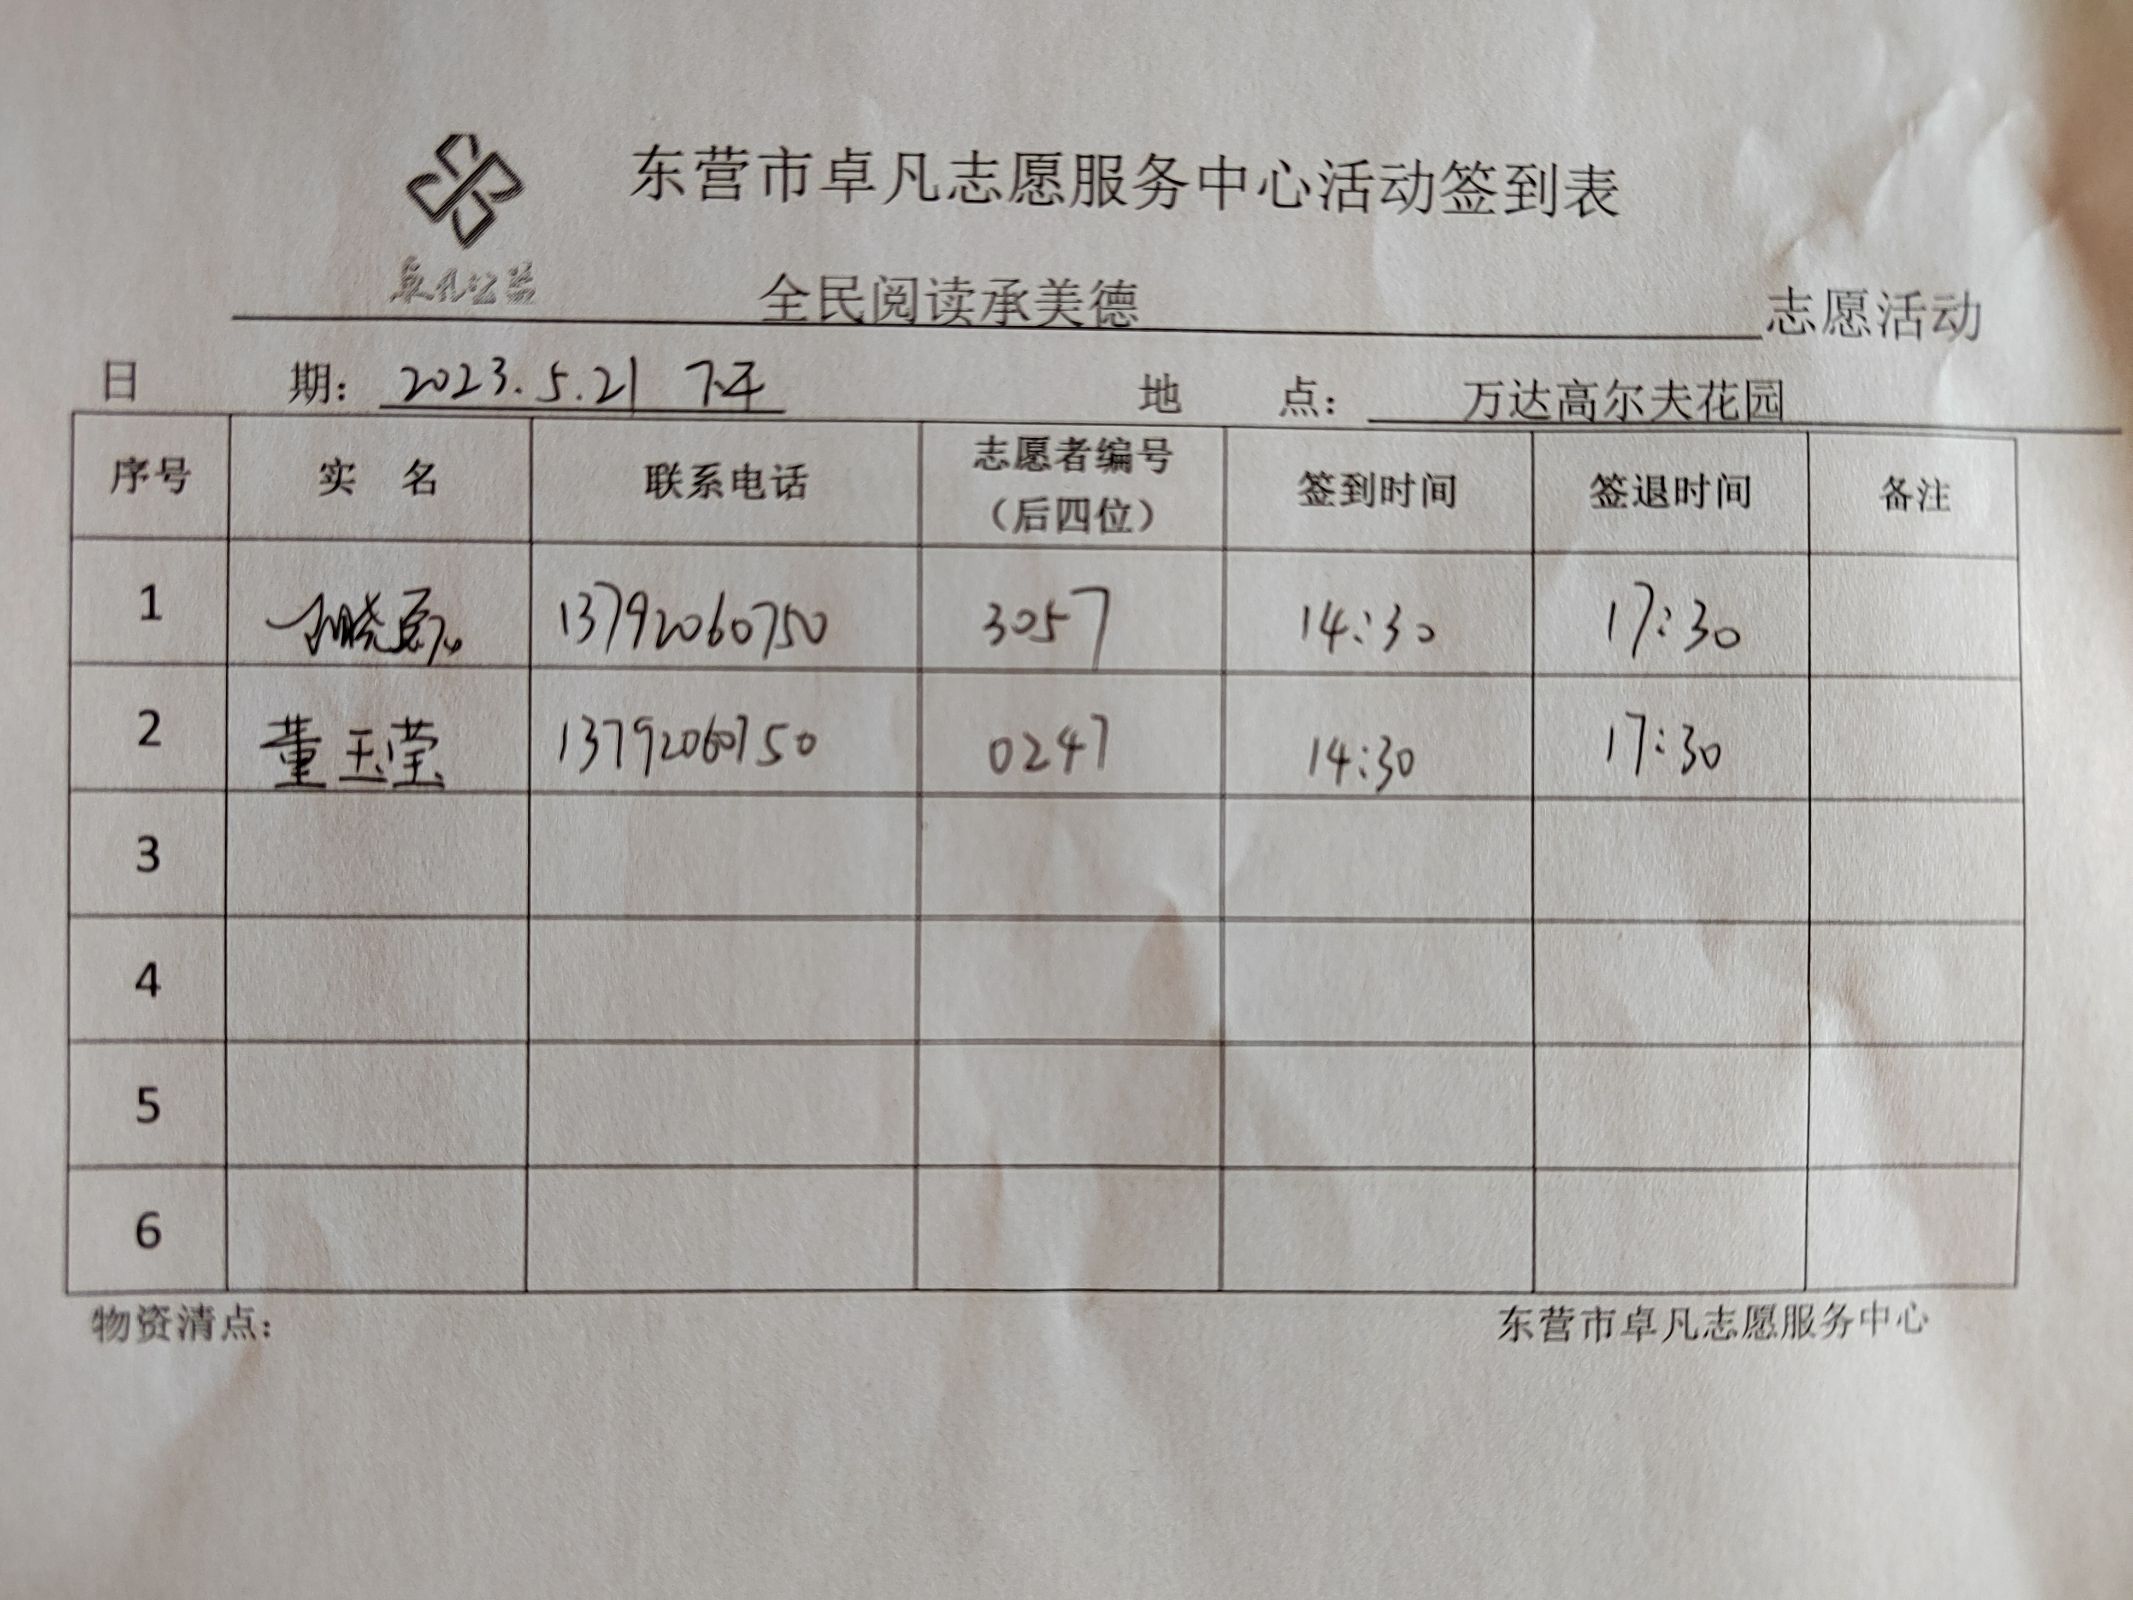 东营市卓凡志愿服务中心活动签到表
卓凡公益
全民阅读承美德 志愿活动
日 期: 2023.5.21 下午 地 点: 万达高尔夫花园
序号 实 名 联系电话 志愿者编号(后四位) 签到时间 签退时间 备注
1 13792060750 3057 14:30 17:30
2 董玉莹 13792060750 0247 14:30 17:30
3
4
5
6
物资清点: 东营市卓凡志愿服务中心